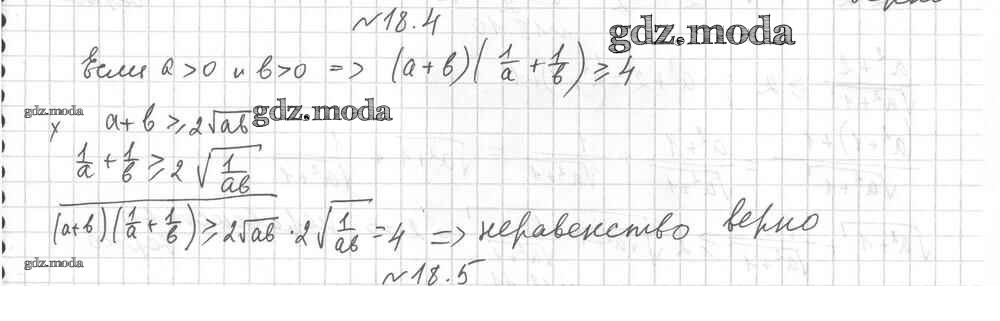 №18.4
gdz.moda
Если a>0 и b>0 => (a+b)(1/a + 1/b) ≥ 4
gdz.moda
× a+b ≥ 2√ab gdz.moda
1/a + 1/b ≥ 2√(1/ab)
(a+b)(1/a + 1/b) ≥ 2√ab · 2√(1/ab) = 4 => неравенство верно
gdz.moda
№18.5